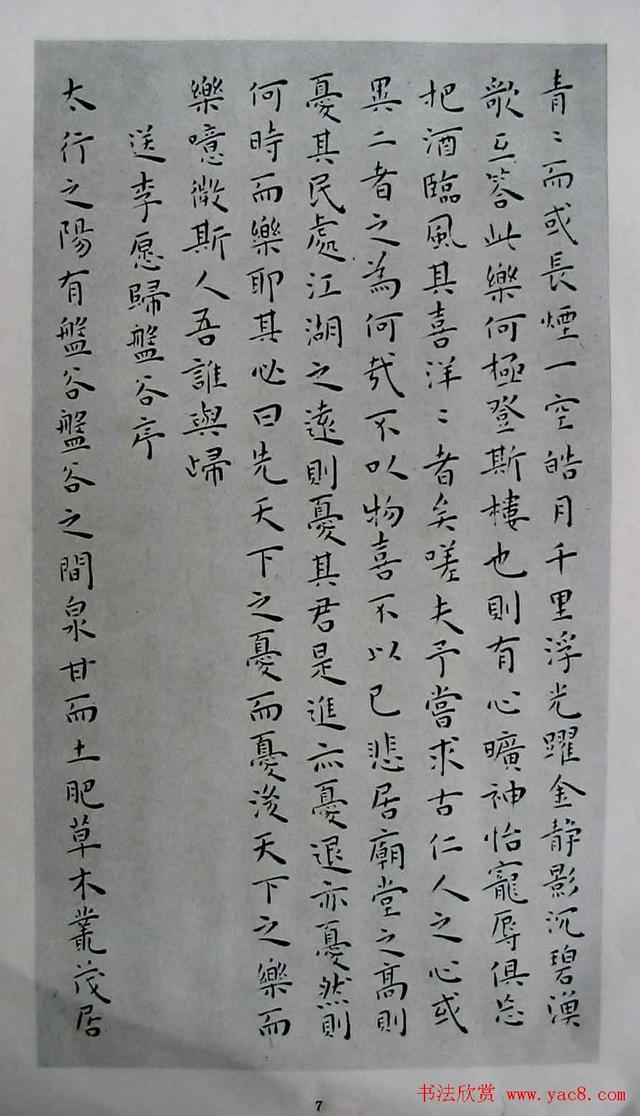 青〻而或長煙一空皓月千里浮光躍金静影沉碧漁
歌互答此樂何極登斯樓也則有心曠神怡寵辱俱忘
把酒臨風其喜洋〻者矣嗟夫予嘗求古仁人之心或
異二者之為何哉不以物喜不以己悲居廟堂之高則
憂其民處江湖之遠則憂其君是進亦憂退亦憂然則
何時而樂耶其必曰先天下之憂而憂後天下之樂而
樂噫微斯人吾誰與歸
送李愿歸盤谷序
太行之陽有盤谷盤谷之間泉甘而土肥草木叢茂居
7
书法欣赏 www.yac8.com